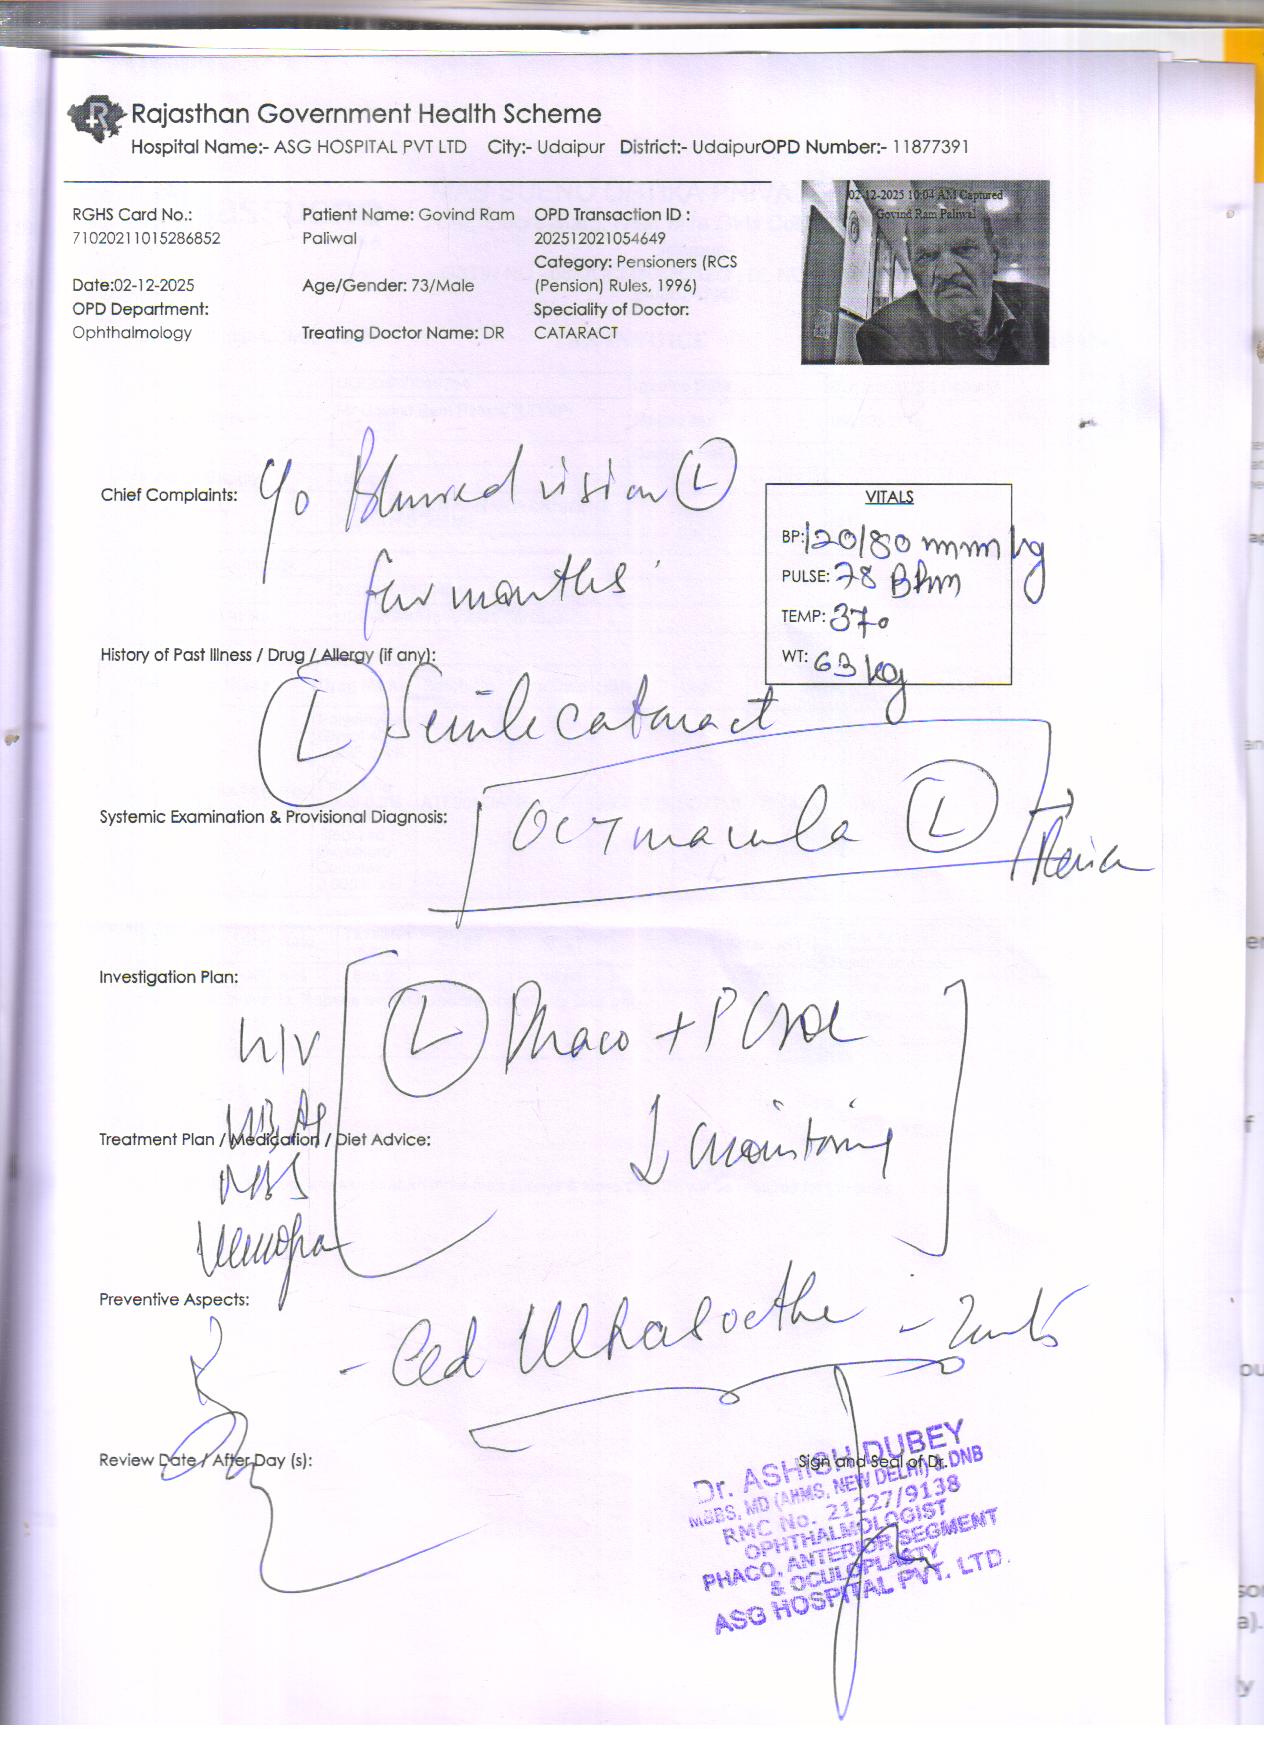 Rajasthan Government Health Scheme
Hospital Name:- ASG HOSPITAL PVT LTD City:- Udaipur District:- UdaipurOPD Number:- 11877391
02-12-2025 10:04 AM Captured
Govind Ram Paliwal
RGHS Card No.:
71020211015286852
Date:02-12-2025
OPD Department:
Ophthalmology
Patient Name: Govind Ram
Paliwal
Age/Gender: 73/Male
Treating Doctor Name: DR
OPD Transaction ID :
202512021054649
Category: Pensioners (RCS
(Pension) Rules, 1996)
Speciality of Doctor:
CATARACT
Chief Complaints: Blurred vision L
few months
VITALS
BP: 120/80 mm hg
PULSE: 78
TEMP: 37°
WT: 63 kg
History of Past Illness / Drug / Allergy (if any):
L Senile cataract
Systemic Examination & Provisional Diagnosis:
OCT macula L
Investigation Plan:
L Phaco + PCIOL
monitoring
HIV
Treatment Plan / Medication / Diet Advice:
Preventive Aspects:
Review Date / After Day (s):
Sign and Seal of Dr.
Dr. ASHISH DUBEY
MBBS, MD (AIIMS, NEW DELHI) & DNB
RMC No. 21227/9138
OPHTHALMOLOGIST
PHACO, ANTERIOR SEGMENT
& OCULOPLASTY
ASG HOSPITAL PVT. LTD.